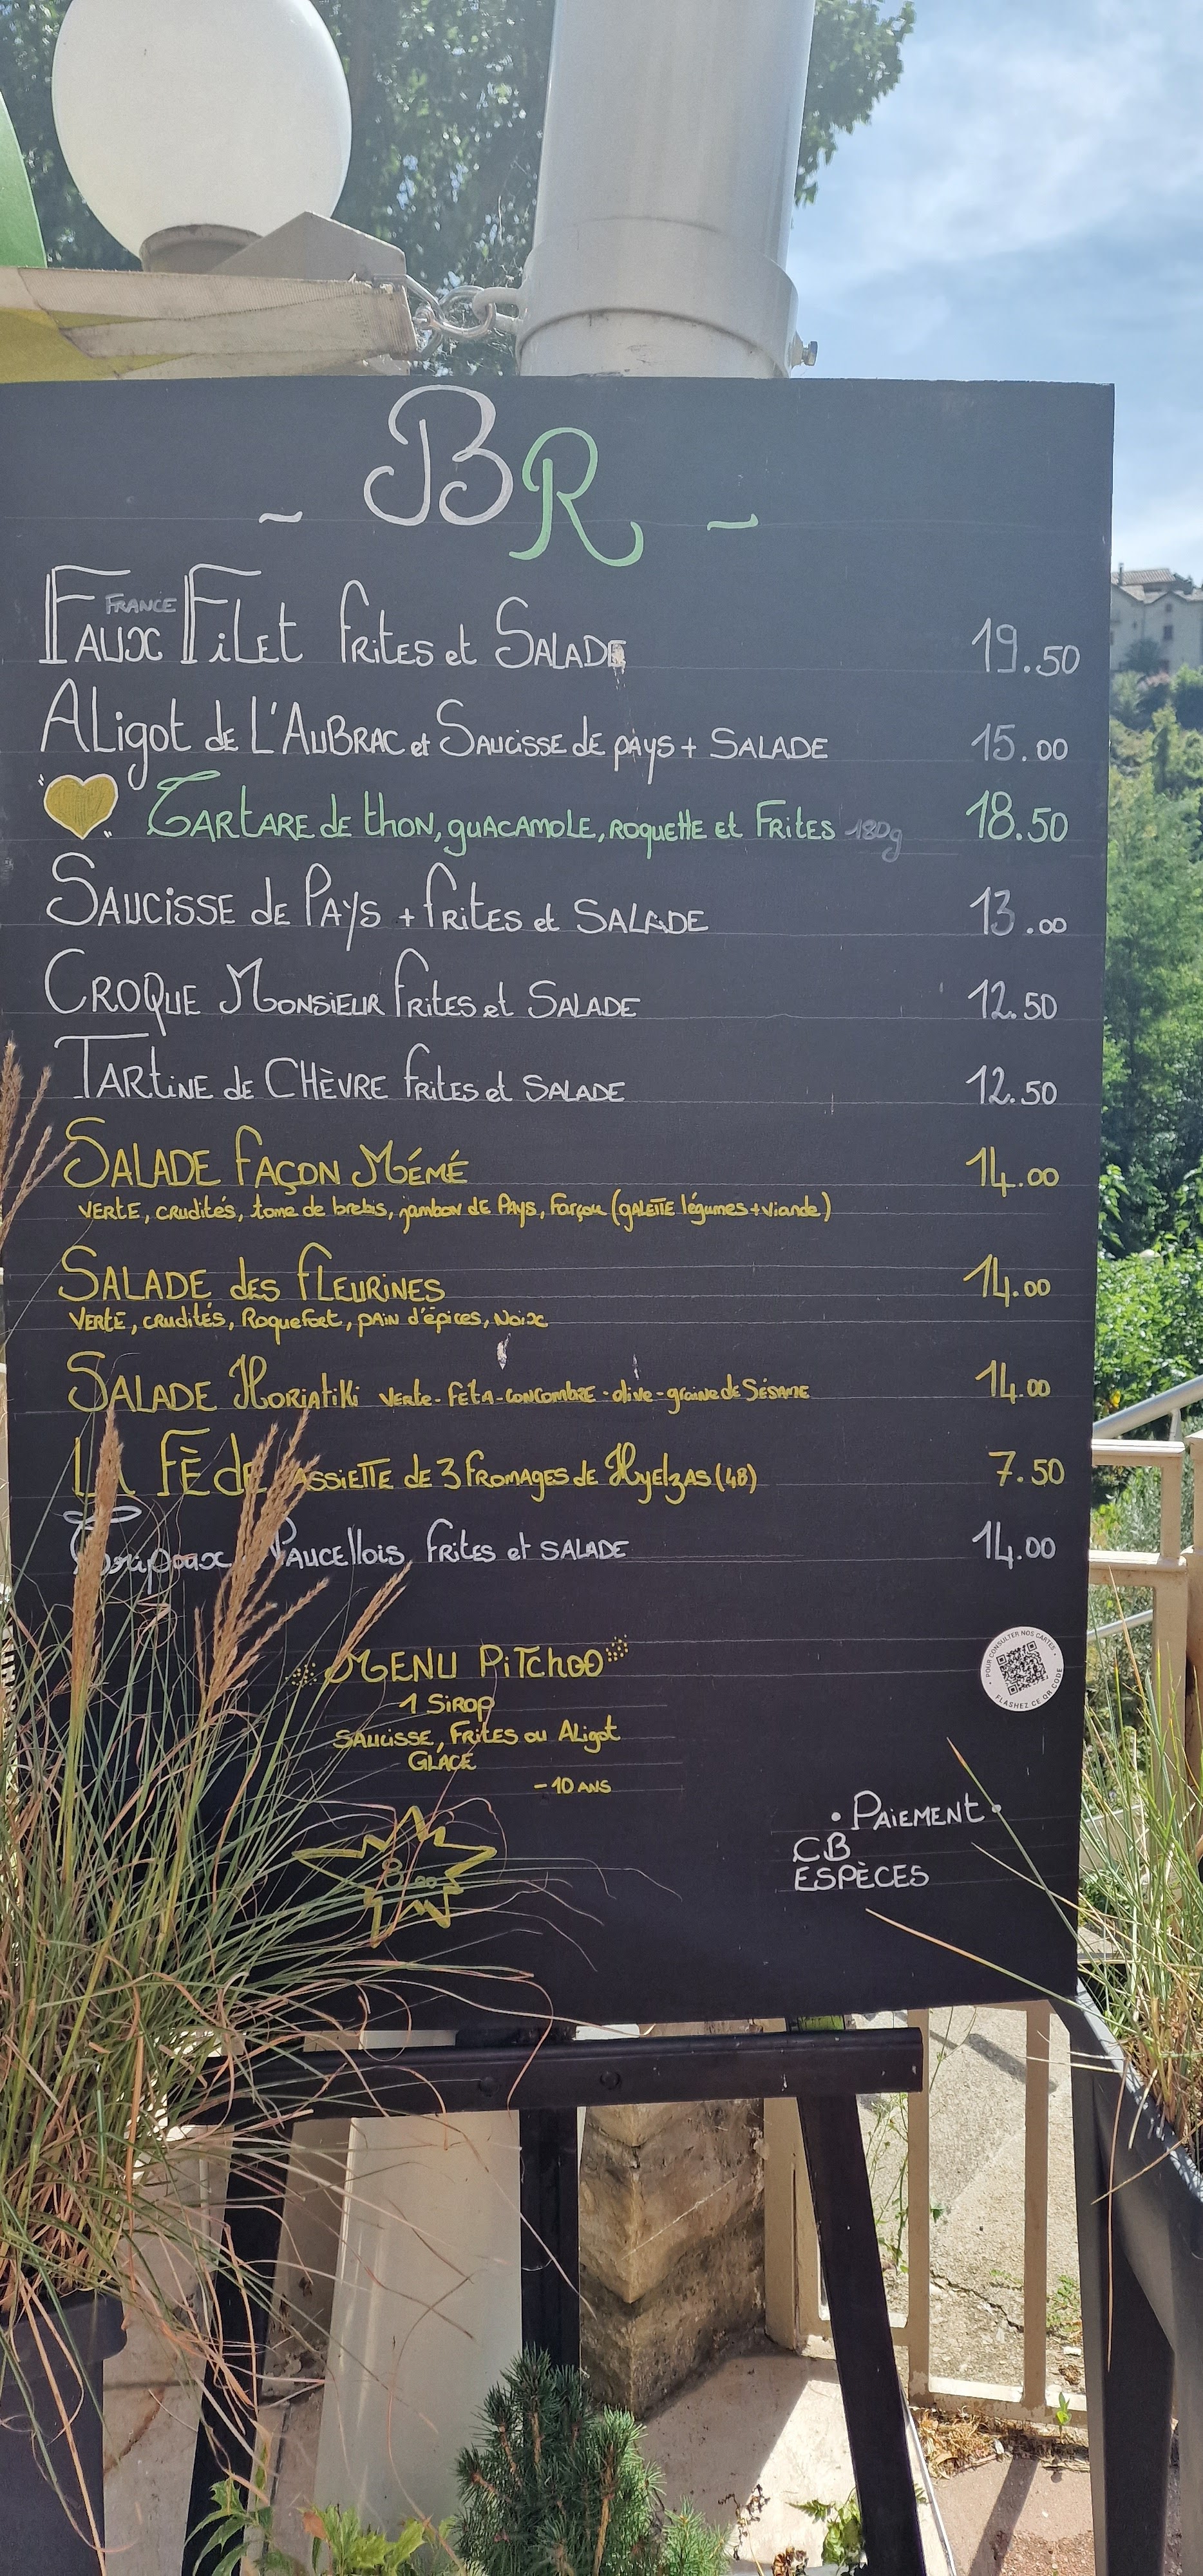 BR
FRANCE
Faux Filet frites et Salade 19.50
Aligot de L'Aubrac et Saucisse de pays + Salade 15.00
Tartare de thon, guacamole, roquette et Frites 180g 18.50
Saucisse de Pays + frites et Salade 13.00
Croque Monsieur frites et Salade 12.50
Tartine de Chèvre frites et Salade 12.50
Salade façon Mémé 14.00
verte, crudités, tome de brebis, jambon de Pays, Farçou (galette légumes + viande)
Salade des fleurines 14.00
Verte, crudités, Roquefort, pain d'épices, Noix
Salade Horiatiki verte - feta - concombre - olive - graine de Sésame 14.00
La Fède assiette de 3 fromages de Hyelzas (48) 7.50
Tripoux Naucellois frites et salade 14.00
Menu Pitchoo
1 Sirop
Saucisse, Frites ou Aligot
Glace
- 10 ans
8.00
POUR CONSULTER NOS CARTES
FLASHEZ CE QR CODE
• Paiement •
CB
Espèces